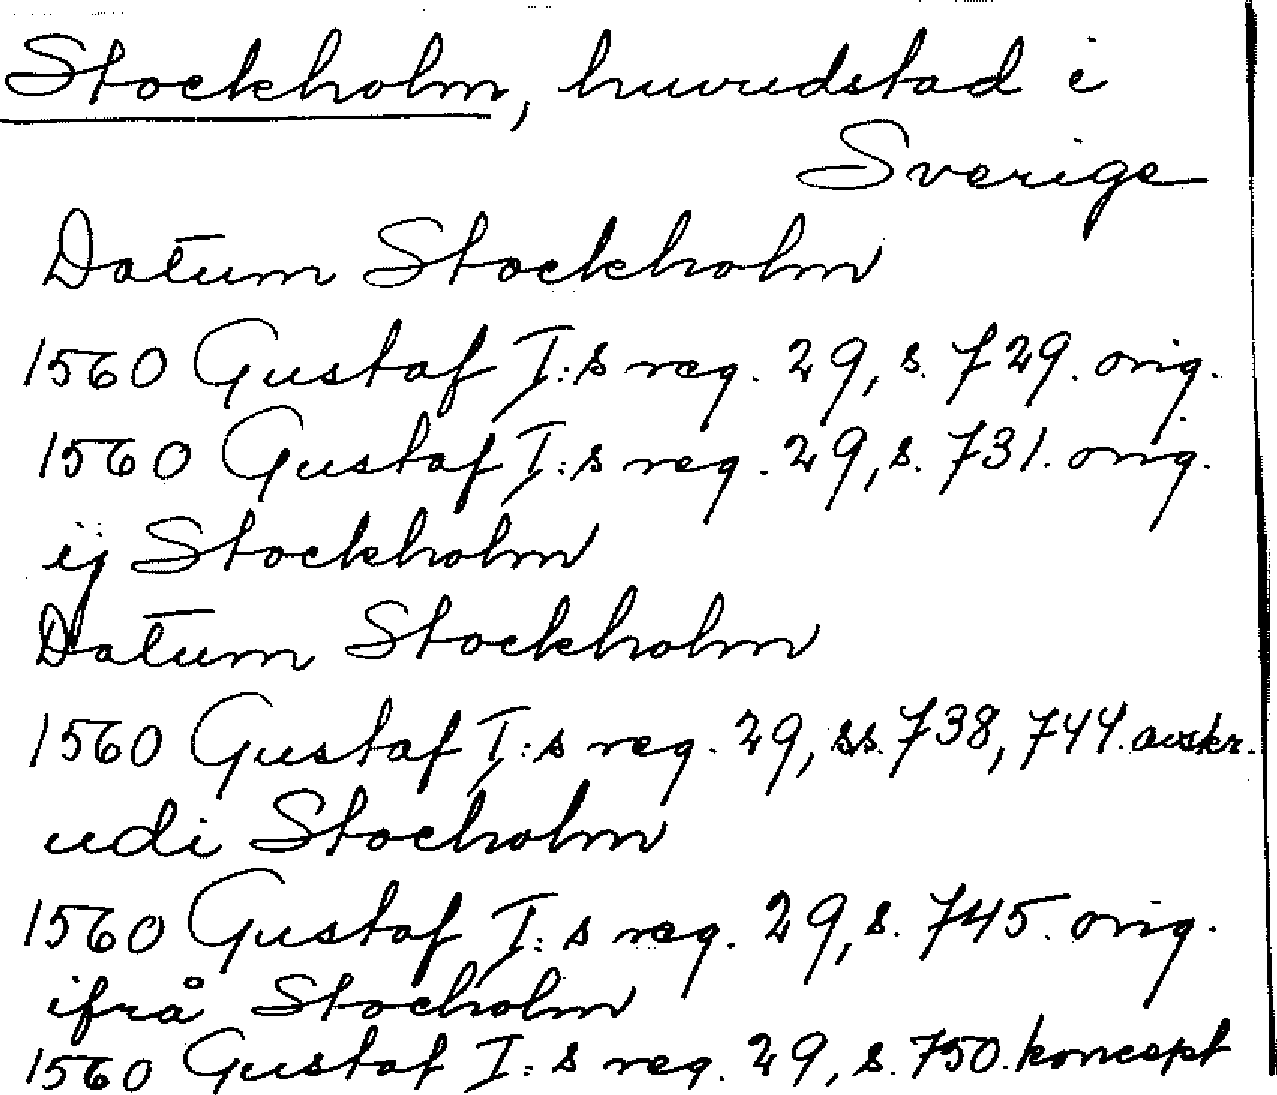 Stockholm, huvudstad i
Sverige
Datum Stockholm
1560 Gustaf I:s reg. 29, s. 729. orig.
1560 Gustaf I:s reg. 29, s. 731. orig.
ij Stockholm
Datum Stockholm
1560 Gustaf I:s reg. 29, ss. 738, 744. avskr.
udi Stocholm
1560 Gustaf I:s reg. 29, s. 745. orig.
ifrå Stocholm
1560 Gustaf I:s reg. 29, s. 750. koncept